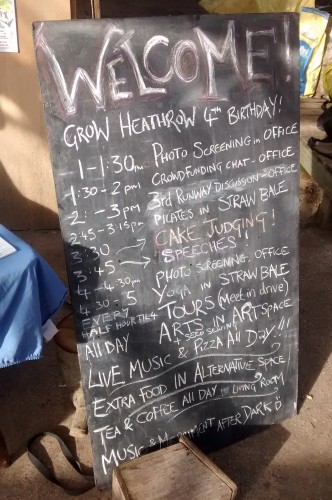 WELCOME!
GROW HEATHROW 4TH BIRTHDAY!
1-1:30pm PHOTO SCREENING in OFFICE
1:30-2pm CROWDFUNDING CHAT - OFFICE
2: -3pm 3rd RUNWAY DISCUSSION - OFFICE
2:45-3:15pm PILATES IN STRAW BALE
3:30 → CAKE JUDGING!
3:45 → SPEECHES!
4-4:30pm PHOTO SCREENING. OFFICE
4:30-5 YOGA in STRAW BALE
EVERY HALF HOUR TOURS (meet in drive)
ALL DAY ARTS IN ART SPACE
+ SEED
LIVE MUSIC & PIZZA ALL DAY!!!
EXTRA FOOD IN ALTERNATIVE SPACE
TEA & COFFEE ALL DAY in LIVING ROOM
MUSIC & AFTER DARK